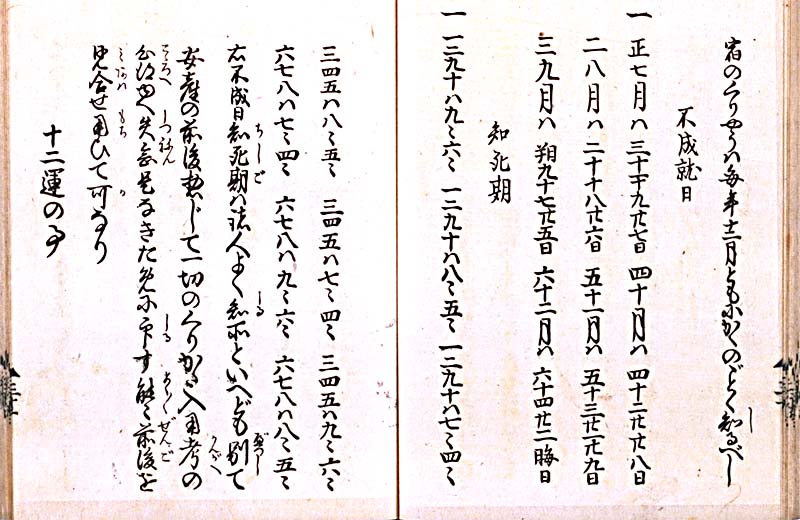 宿のくりやうハ毎年十二月ともにかくのごとく知るべし
不成就日
一 正七月ハ 三十一十九廿七日 四十月ハ 四十二廿廿八日
二八月ハ 二十十八廿六日 五十一月ハ 五十三廿一廿九日
三九月ハ 朔九十七廿五日 六十二月ハ 六十四廿二晦日
知死期
一 一二九十ハ九〻六〻 一二九十ハ八〻五〻 一二九十ハ七〻四〻
三四五ハ八〻五〻 三四五ハ七〻四〻 三四五ハ九〻六〻
六七八ハ七〻四〻 六七八ハ九〻六〻 六七八ハ八〻五〻
右不成日知死期ハ諸人よく知所といへども別て
産の前後惣じて一切のくりかた入用考の
ゆへ失念是なきため爰に印す能〻前後を
見合せ用ひて可なり
十二運の事